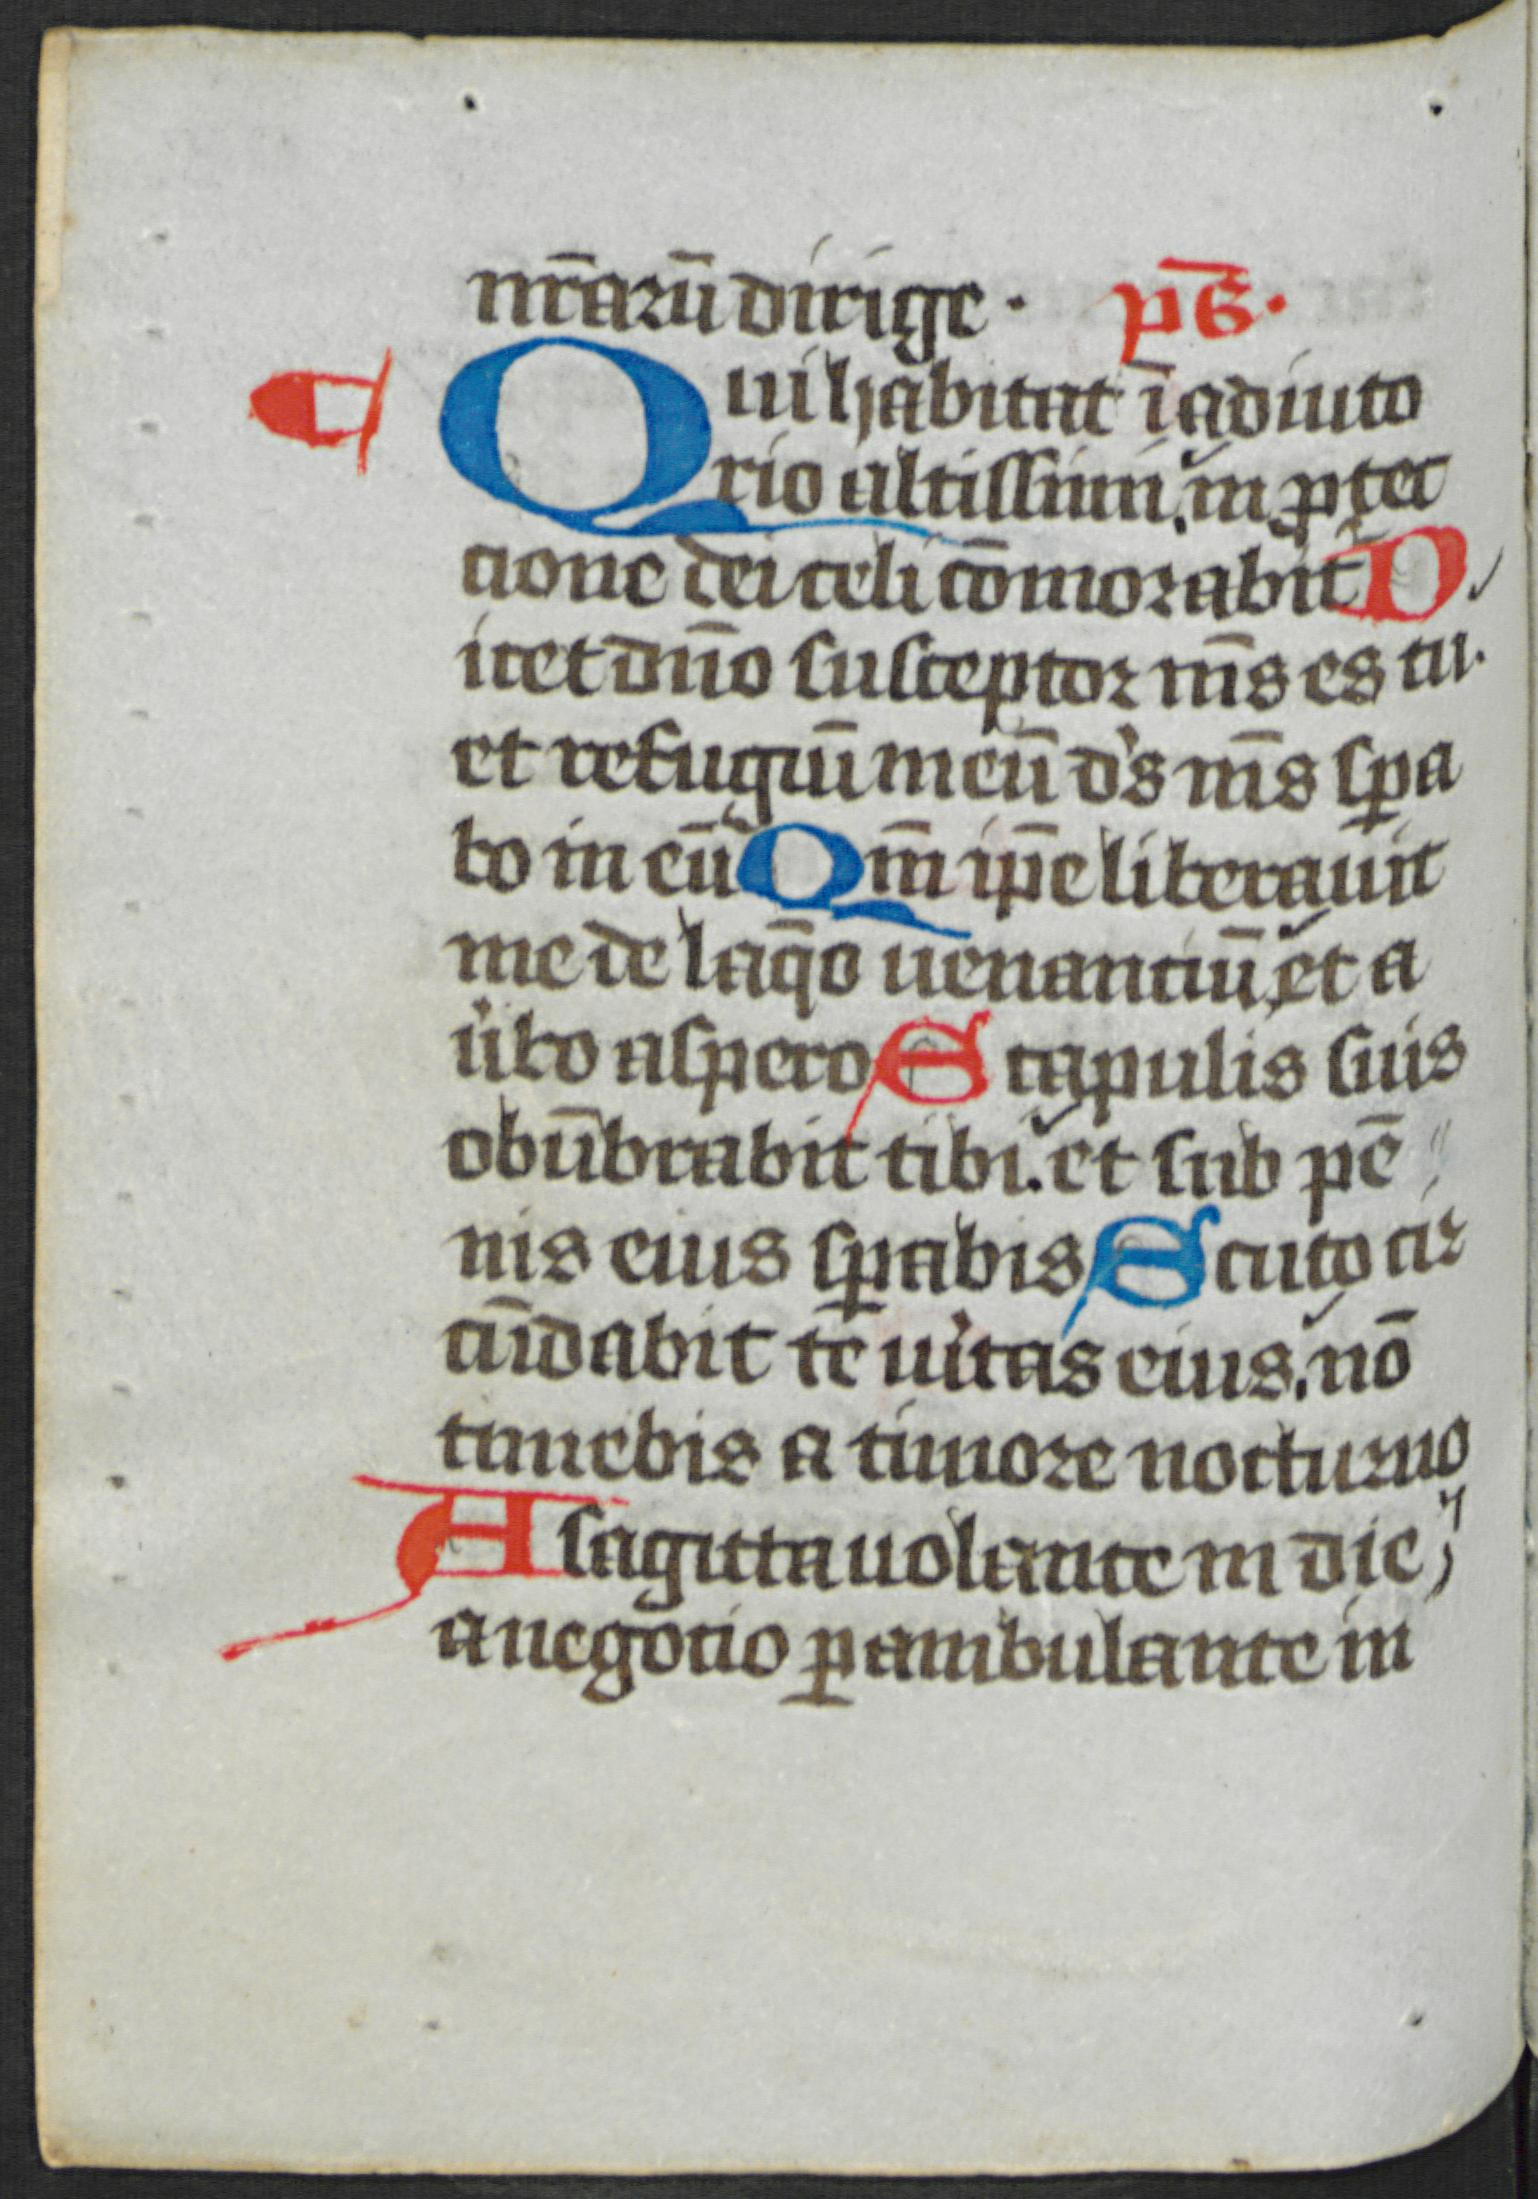 nr̄arū dirige · p̄s.
¶ Qui habitat ī adiuto
rio altissimi. in ꝓtec
cione dei celi cōmorabit D
icet dn̄o susceptor mn̄s es tu.
et refugiū meū d's mn̄s sꝑa
bo in eū Qm̄ ip̄e liberauit
me de laq̄o uenanciū et a
u'bo aspero Scapulis suis
obūbrabit tibi. et sub pē
nis eius sꝑabis Scuto cir
cūdabit te u'itas eius. nō
timebis a timore nocturno
A sagitta uolante in die
a negocio ꝑambulante in